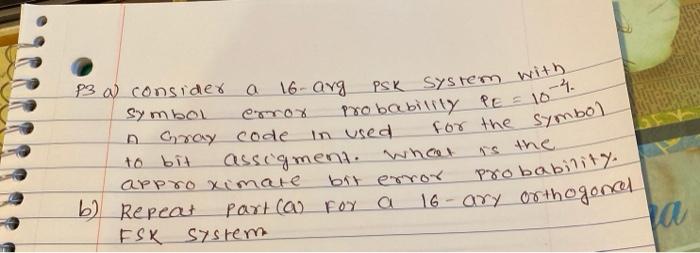 P3 a) consider a 16-arg PSK system with
symbol error probability PE = 10⁻⁴.
A Gray code in used for the symbol
to bit assigment. what is the
approximate bit error probability.
b) Repeat part (a) For a 16-ary orthogonal
FSK system